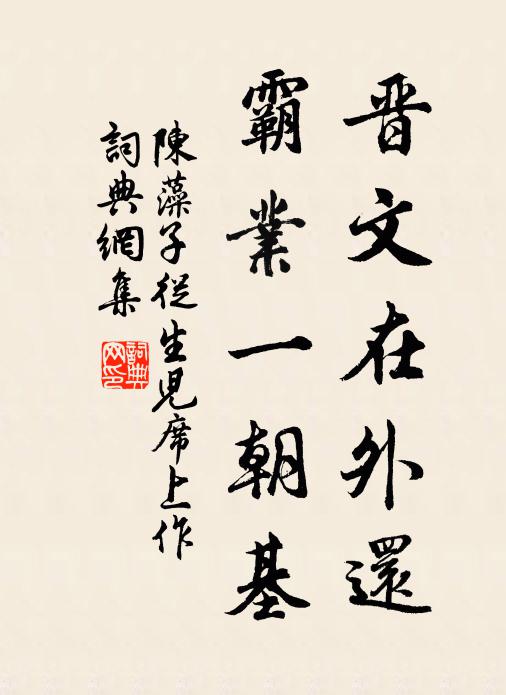 晋文在外還
霸業一朝基
陳藻子從生児席上作
詞典網集
詞典网印